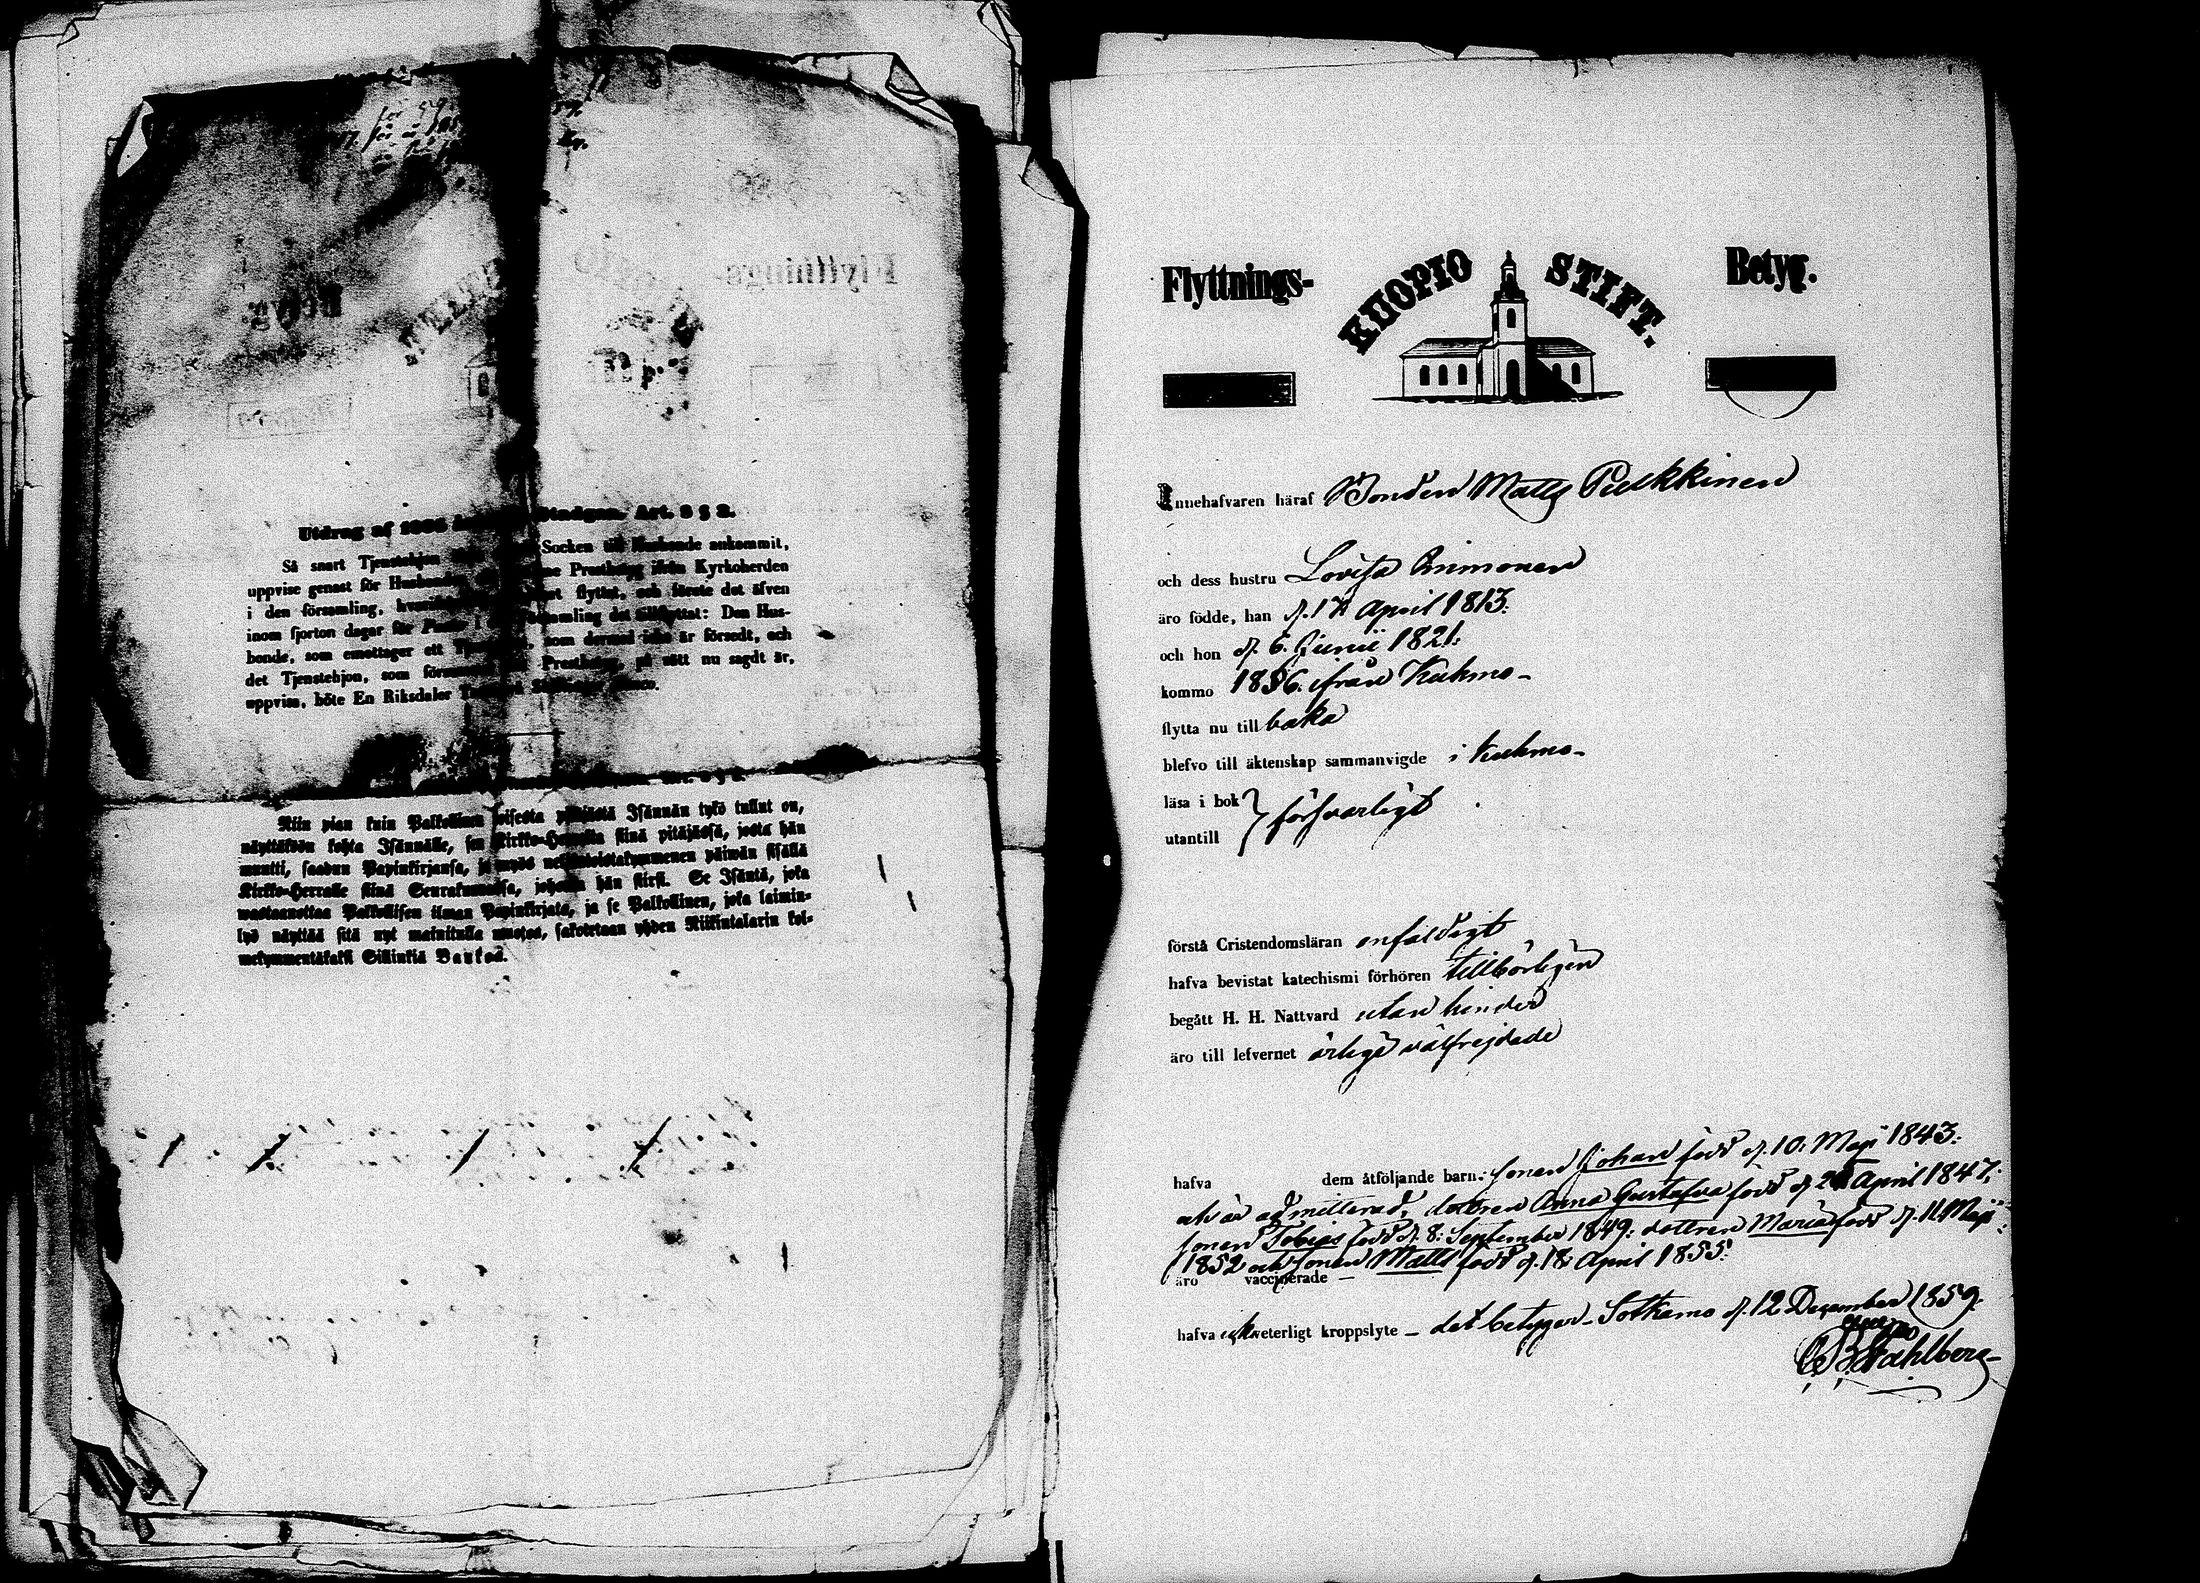 Utdrag af
Så snart Tjenstehjon Socken till Husbonde ankommit,
uppvise genast för Husbonden Prestbetyg ifrån Kyrkoherden
i den församling, flyttat, och förete det äfven
inom fjorton dagar för församling det tillflyttat: Den Hus-
bonde, som emottager ett som dermed icke är försedt, och
det Tjenstehjon, som Prestbetyg, på sätt nu sagdt är,
uppvisa, böte En Riksdaler Banco.
Niin pian kuin Palkollinen toisesta pitäjästä Isännän tykö tullut on,
näyttäkään kohta Isännälle, sen Kirkko-Herralta siinä pitäjässä, josta hän
muutti, saadun Papinkirjansa, ja myös neljäntoistakymmenen päiwän sisällä
Kirkko-Herralle siinä Seurakunnassa, johonka hän siirsi. Se Isäntä, joka
wastaanottaa Palkollisen ilman Papinkirjata, ja se Palkollinen, joka laimin-
lyö näyttää sitä nyt mainitulla muotoa, sakotetaan yhden Riikintalarin kol-
mekymmentäkaksi Sillinkiä Bankos.
Flyttnings- KUOPIO STIFT. Betyg.
Innehafvaren häraf Bonden Matts Pulkkinen
och dess hustru Lovisa Ammonen
äro födde, han d. 17 April 1813:
och hon d. 6. Junii 1821:
kommo 1856: ifrån Kuhmo-
flytta nu till baka
blefvo till äktenskap sammanvigde i Kuhmo-
läsa i bok
utantill } försvarligt
förstå Cristendomsläran enfaldigt
hafva bevistat katechismi förhören tillbörligen
begått H. H. Nattvard utan hinder
äro till lefvernet ärlige välfrejdade
hafva dem åtföljande barn: sonen Johan född d. 10: Maji 1843:
och är admitterad, dottren Anna Gustafva född d. April 1847;
sonen Tobias född d. 8: September 1849: dottren Maria född d. 11 Maji
1852 och sonen Matts född d. 18 April 1855:
äro vaccinerade –
hafva icke veterligt kroppslyte – det betygar – Sotkamo d. 12 December 1859.
Stahlberg